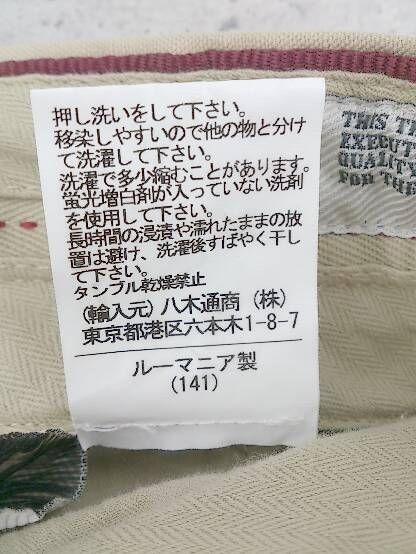 押し洗いをして下さい。
移染しやすいので他の物と分け
て洗濯して下さい。
洗濯で多少縮むことがあります。
蛍光増白剤が入っていない洗剤
を使用して下さい。
長時間の浸漬や濡れたままの放
置は避け、洗濯後すばやく干し
て下さい。
タンブル乾燥禁止
(輸入元) 八木通商 (株)
東京都港区六本木1-8-7
ルーマニア製
(141)
THIS
EXECUT
QUALITY
FOR